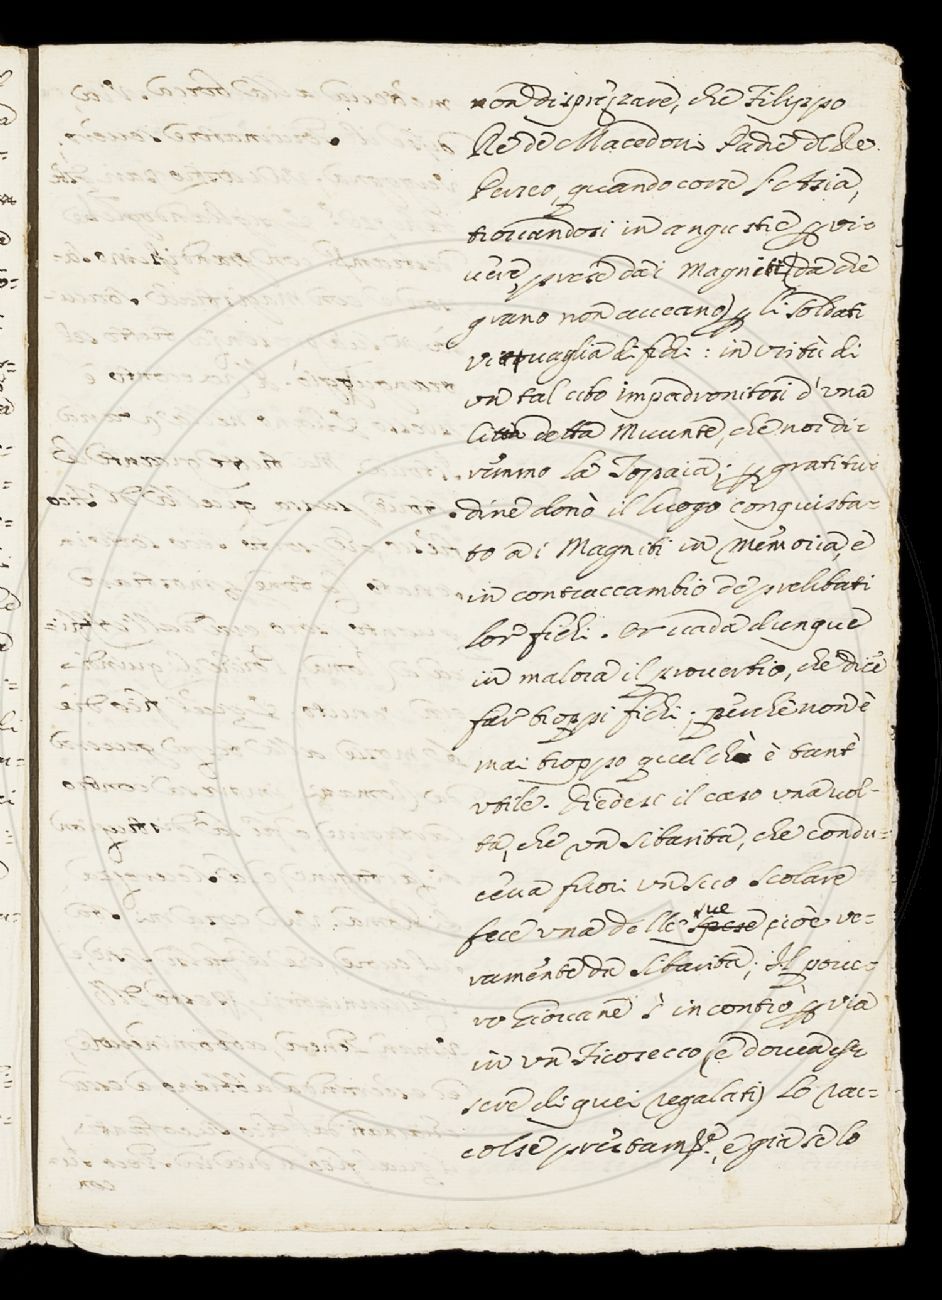 non disprezzare, che Filippo
Re de Macedoni Padre del Re
Perseo, quando corre l'Asia,
trovandosi in angustie per vi=
vere, prese dai Magniti (da che
grano non aveano) per li soldati
vittuaglia di fichi: in virtù di
un tal cibo impadronitosi d'una
Città detta Miunte, che noi di=
remmo la Topaia; per gratitu=
dine donò il luogo conquista=
to ai Magniti in memoria, e
in contraccambio de prelibati
lor fichi. Or vada dunque
in malora il proverbio, che dice
far troppi fichi; perche non è
mai troppo quel chè è tant'
utile. Diedesi il caso una vol=
ta, che un Sibarita, che condu=
ceva fuori un suo scolare
fece una delle sue cioè ve=
ramente da Sibarita; Il pove=
ro Giovane s' incontrò per via
in un Ficosecco (e doveva es=
sere di quei regalati) Lo rac=
colse prestam.te, e già se lo
con